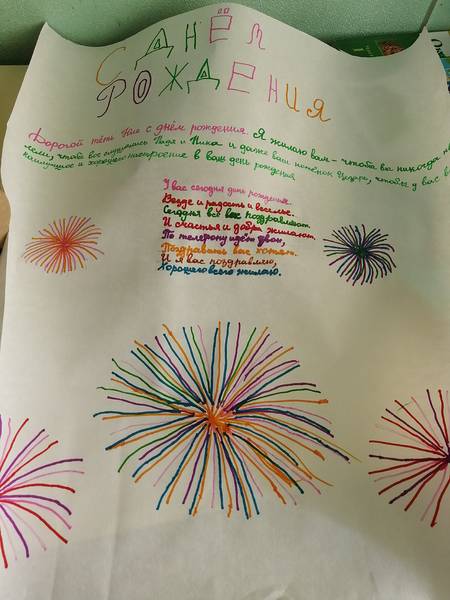 С ДНЁМ
РОЖДЕНИЯ
Дорогой тёти Ние с днём рождения. Я желаю вам - чтобы вы никогда не
чтобы все слушались Надя и Ника и даже ваш котёнок Цезарь, чтобы у вас в
наилучшее и хорошего настроение в ваш день рождения
У вас сегодня день рожденья.
Везде и радость и веселье.
Сегодня все вас поздравляют
И счастья и добра желают.
По телефону идет звон,
Поздравить вас хотят.
И я вас поздравляю,
Хорошего всего желаю.